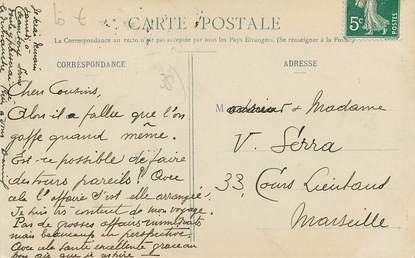 CARTE POSTALE
La Correspondance au recto n'est pas acceptée par tous les Pays Etrangers. (Se renseigner à la Poste)
CORRESPONDANCE
ADRESSE
5c
Chers Cousins,
Alors il a fallu que l'on
gaffe quand même.
Est-ce possible de faire
des tours pareils! Avec
cela l'affaire s'est elle arrangée
Je suis très content de mon voyage.
Pas de grosses affaires
mais beaucoup en perspective.
Avec cela santé excellente grâce au
bon air que je respire
M et Madame
V. Serra
33, Cours Lieutaud
Marseille